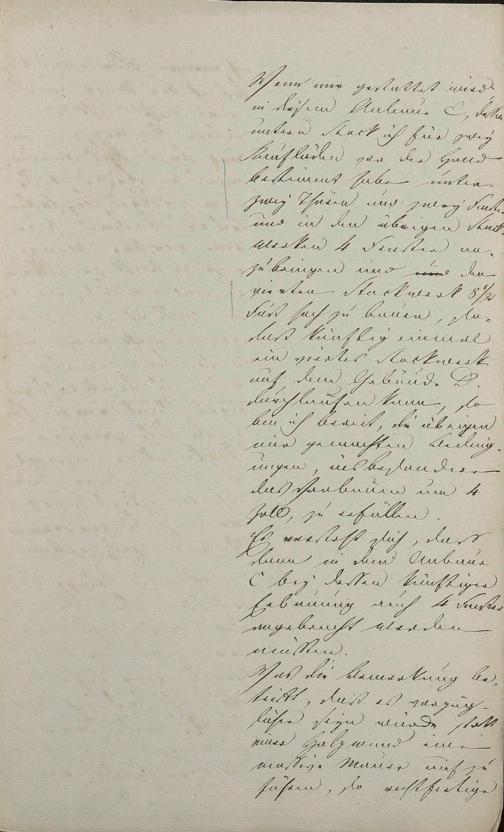 Wenn mir gestattet wird
in diesem Anbaue C, dessen
untern Stock ich für zwey
Kaufläden vor der Hand
bestimmt habe unten
zwey Thüren und zwey Fenster
und in den übrigen Stock
werken 4 Fenster an-
zubringen und den
vierten Stockwerk 8 1/2
Fuß hoch zu bauen, so-
daß künftig einmal
ein viertes Stockwerk
auf dem Gebäude D.
durchlaufen kann, so
bin ich bereit, die übrigen
mir gemachten Beding-
ungen, insbesondere
das um 4
Zoll, zu erfüllen.
Es versteht sich, dass
dann in dem Anbaue
C bey dessen künftiger
Erbauung auch 4 Fenster
angebracht werden
müssen.
Was die Bemerkung be-
trifft, daß es vorzüg-
licher seyn würde statt
einer Holzwand eine
massive Mauer auf zu
führen, so rechtfertige